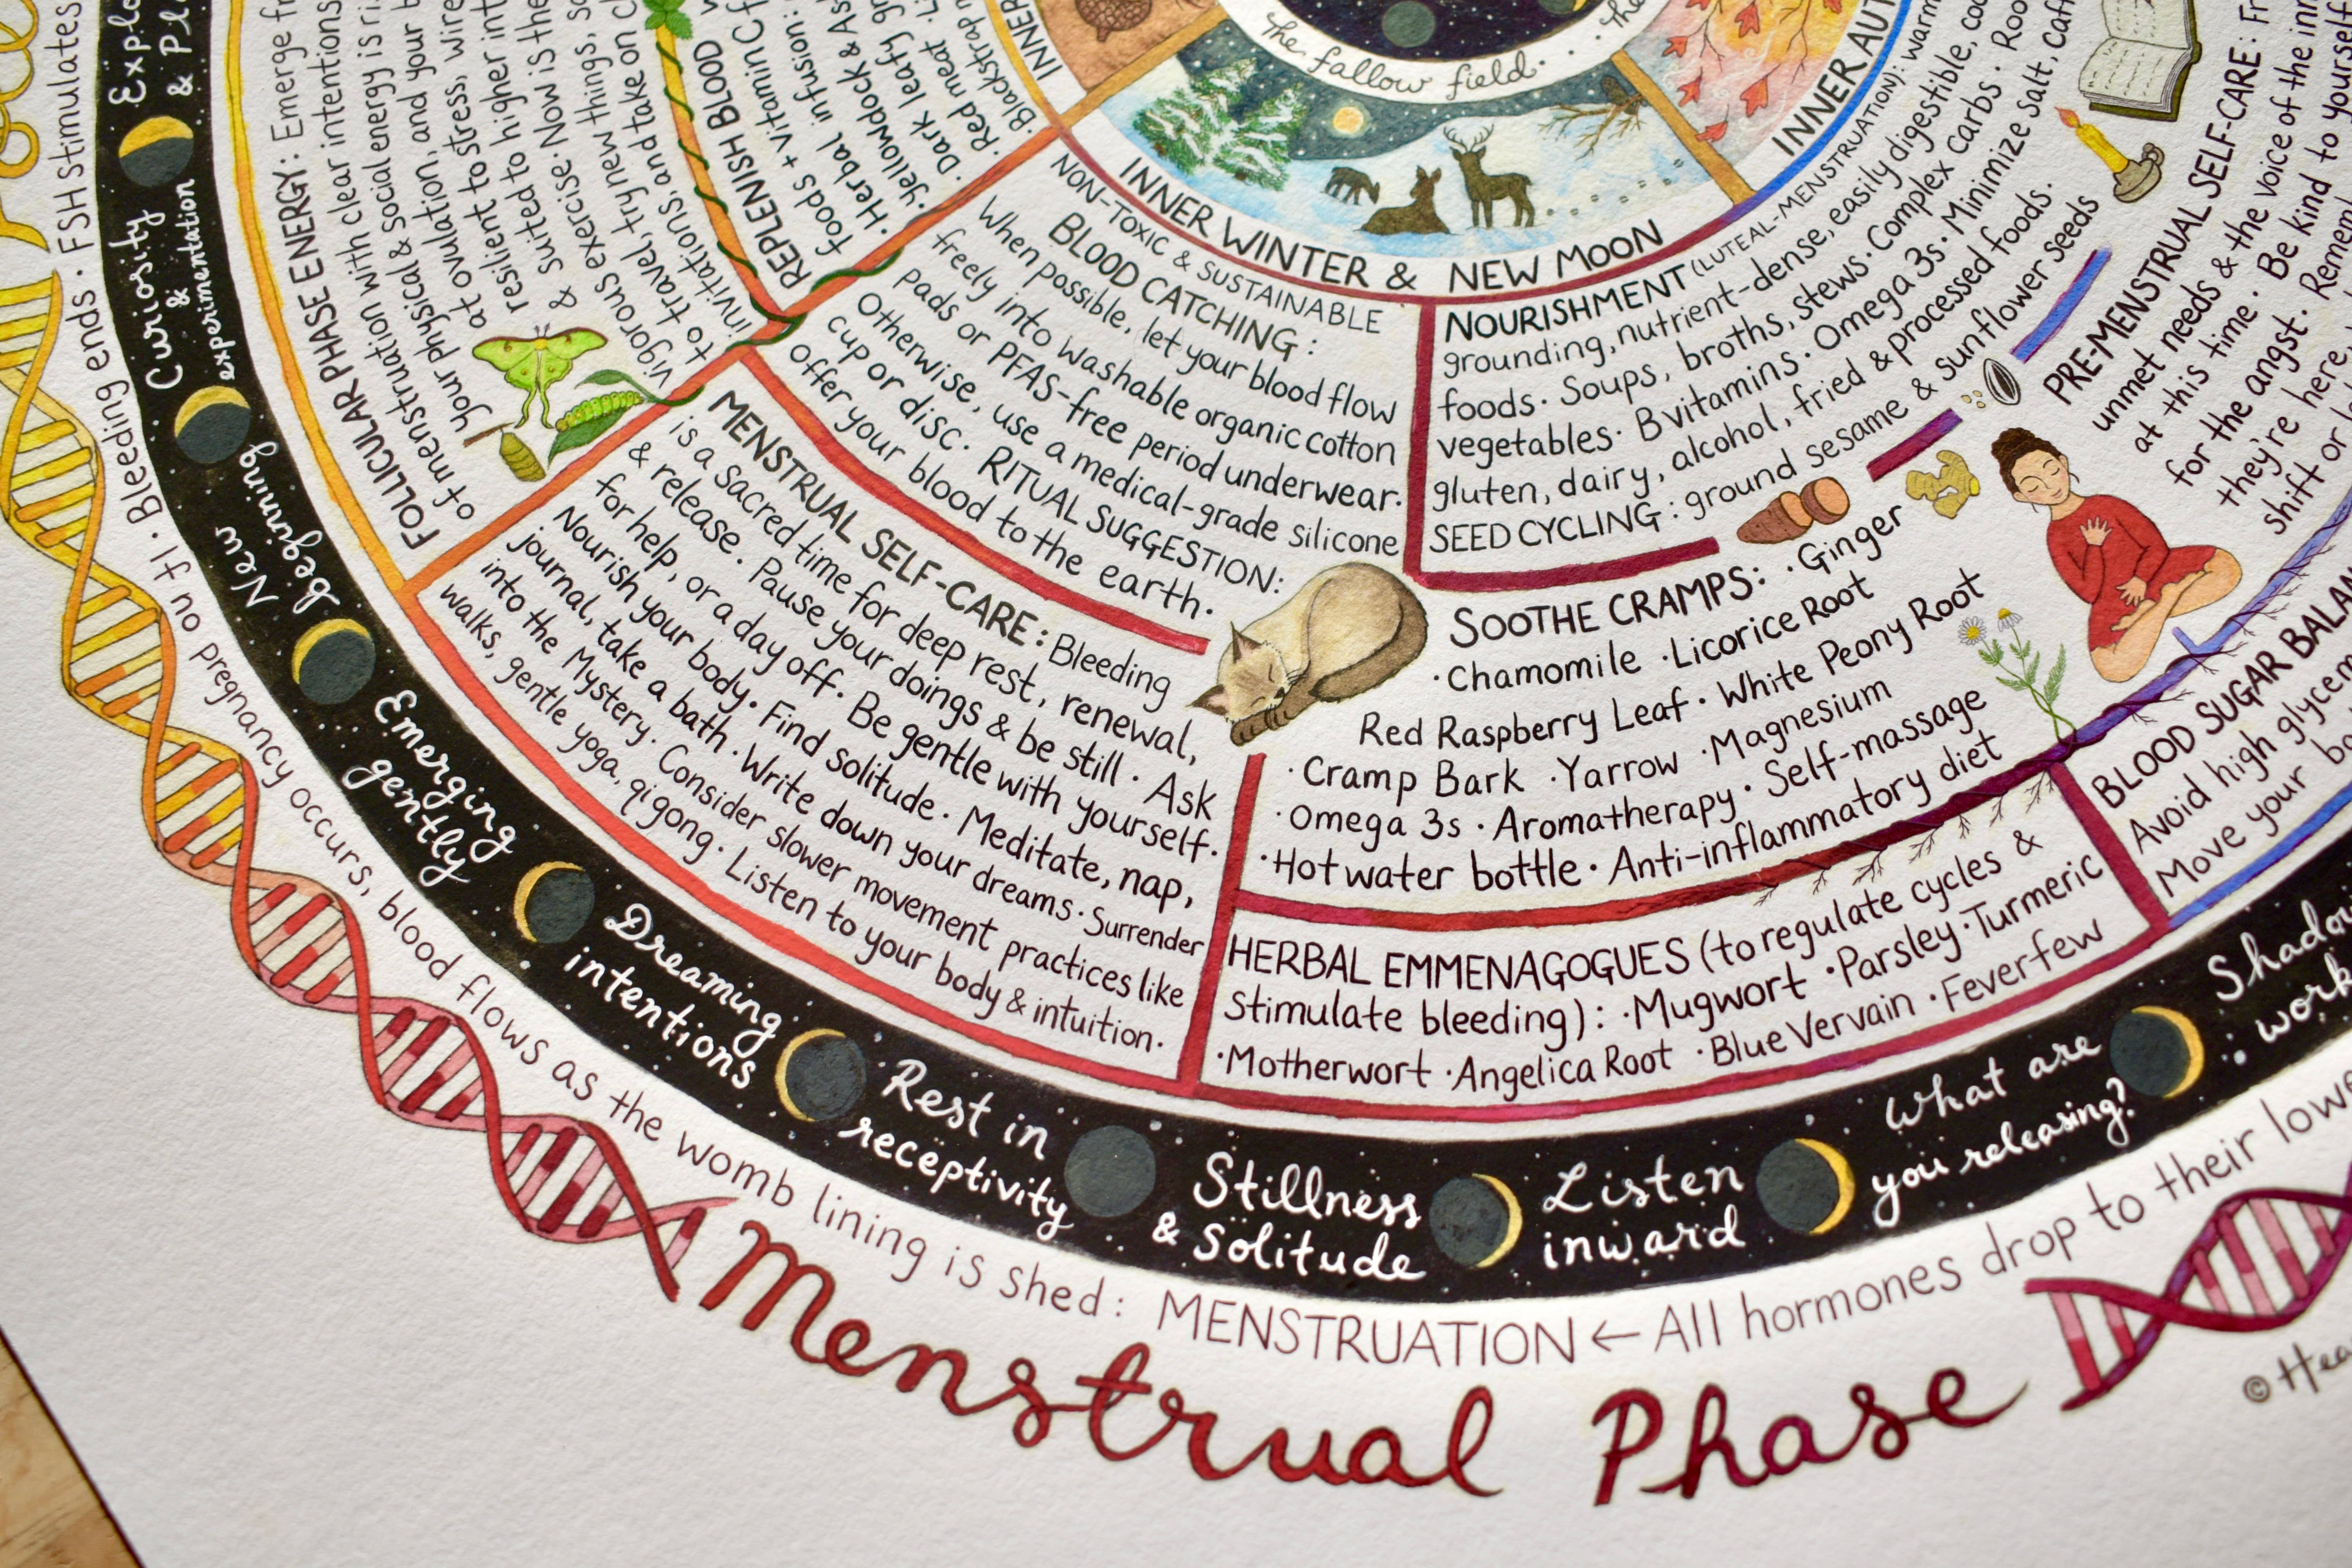 the fallow field.
INNER WINTER & NEW MOON
INNER
INNER AUT
NON-TOXIC & SUSTAINABLE
BLOOD CATCHING:
When possible, let your blood flow
freely into washable organic cotton
pads or PFAS-free period underwear.
Otherwise, use a medical-grade silicone
cup or disc. RITUAL SUGGESTION:
Offer your blood to the earth.
NOURISHMENT (LUTEAL-MENSTRUATION): warm
grounding, nutrient-dense, easily digestible, coo
foods. Soups, broths, stews. Complex Carbs. Roo
vegetables. B vitamins. Omega 3s. Minimize salt, caf
gluten, dairy, alcohol, fried & processed foods.
SEED CYCLING: ground sesame & sunflower seeds
REPLENISH BLOOD
foods + vitamin C f
·Herbal infusion:
yellowdock & As
·Dark leafy gr
·Red meat ·Li
·Blackstrap
FOLLICULAR PHASE ENERGY: Emerge fr
of menstruation with clear intentions
your physical & social energy is ri
at ovulation, and your b
resilient to stress, wire
& suited to higher int
vigorous exercise. Now is the
to travel, try new things, so
invitations, and take on c
MENSTRUAL SELF-CARE: Bleeding
is a sacred time for deep rest, renewal,
& release. Pause your doings & be still. Ask
for help, or a day off. Be gentle with yourself.
Nourish your body. Find solitude. Meditate, nap,
journal, take a bath. Write down your dreams. Surrender
into the Mystery. Consider slower movement practices like
walks, gentle yoga, qigong. Listen to your body & intuition.
SOOTHE CRAMPS: ·Ginger
·Chamomile ·Licorice Root
Red Raspberry Leaf · White Peony Root
·Cramp Bark ·Yarrow ·Magnesium
·Omega 3s ·Aromatherapy · Self-massage
·Hot water bottle · Anti-inflammatory diet
HERBAL EMMENAGOGUES (to regulate cycles &
stimulate bleeding): ·Mugwort ·Parsley ·Turmeric
·Motherwort ·Angelica Root ·Blue Vervain ·Feverfew
PRE-MENSTRUAL SELF-CARE: Fr
unmet needs & the voice of the inn
at this time. Be kind to yourself
for the angst. Remem
they're here,
shift or
BLOOD SUGAR BALAN
Avoid high glycem
Move your bo
Explo
& Pl
Curiosity
&
experimentation
New
beginning
Emerging
gently
Dreaming
intentions
Rest in
receptivity
Stillness
& Solitude
Listen
inward
What are
you releasing?
Shadow
work
FSH stimulates
Bleeding ends. If no pregnancy occurs, blood flows as the womb lining is shed: MENSTRUATION ← All hormones drop to their lowe
Menstrual Phase
© Hea